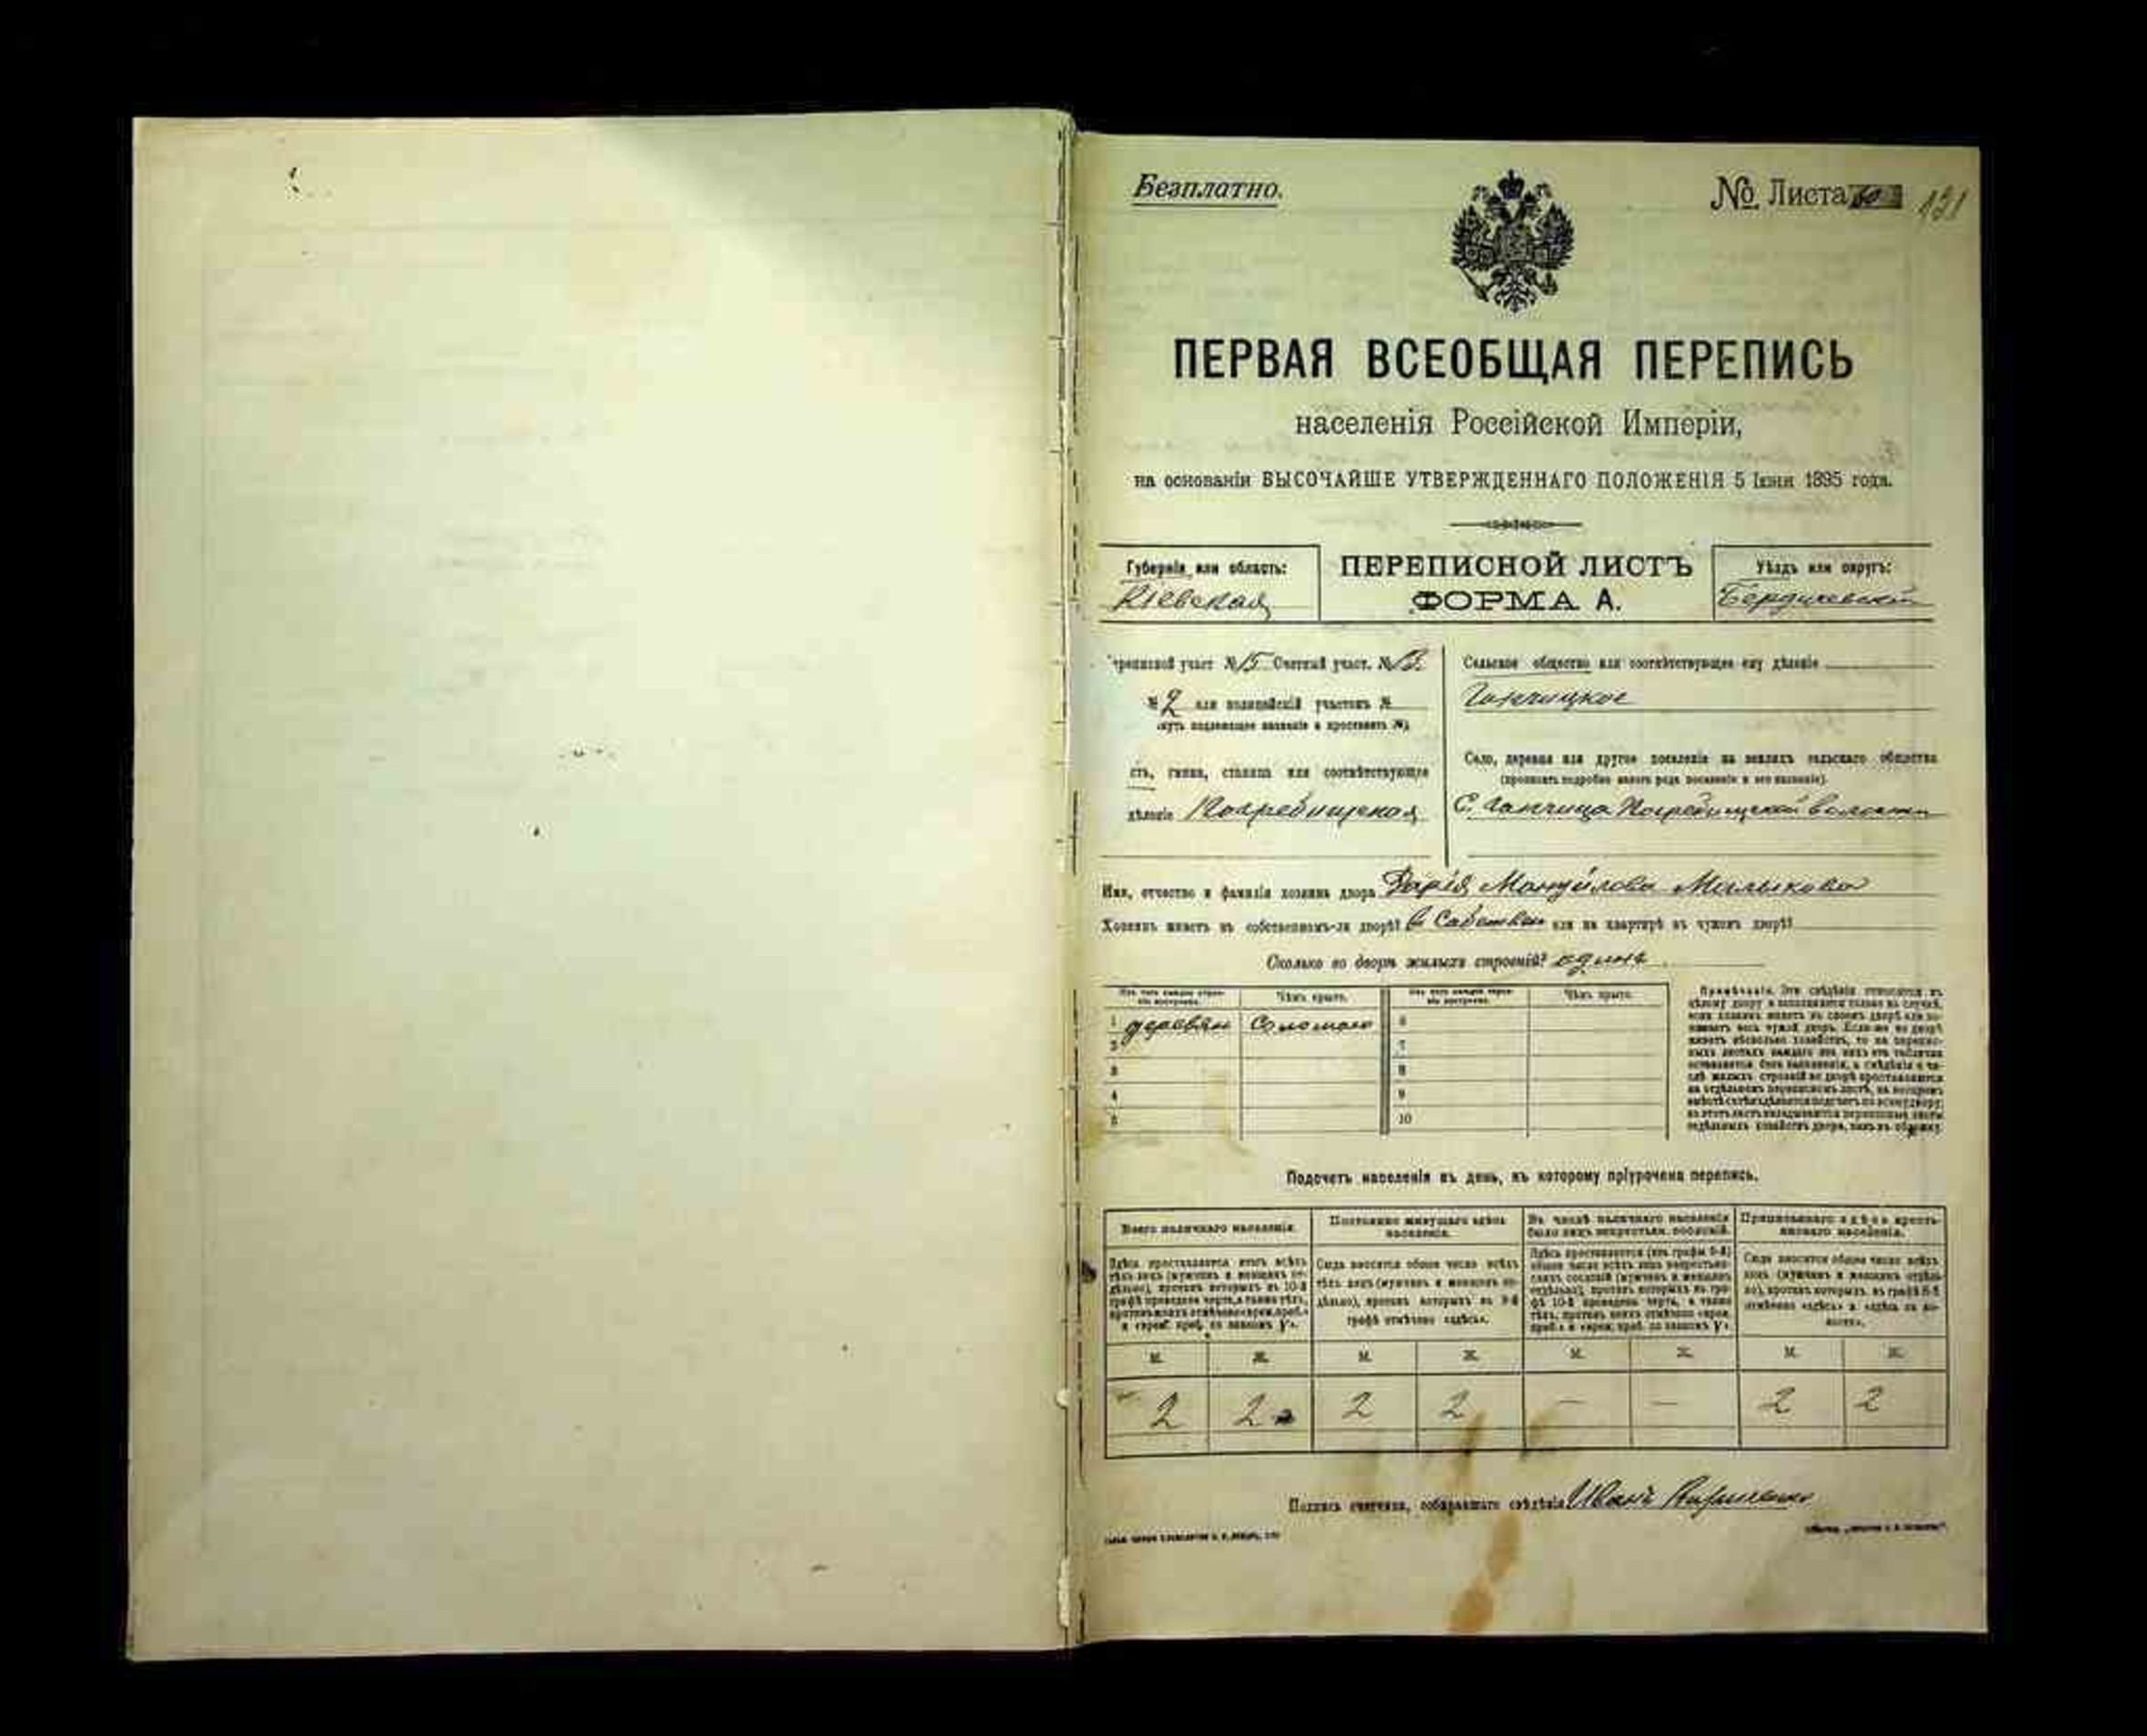 Безплатно.
№ Листа 60
121
ПЕРВАЯ ВСЕОБЩАЯ ПЕРЕПИСЬ
населенія Россійской Имперіи,
на основаніи ВЫСОЧАЙШЕ УТВЕРЖДЕННАГО ПОЛОЖЕНІЯ 5 Іюня 1895 года.
Губернія или область:
Кіевская
ПЕРЕПИСНОЙ ЛИСТЪ
ФОРМА А.
Уѣздъ или округъ:
Бердичевскій
реписной участ №15 Счетный участ. №
№ 2 или полицейскій участокъ №
нуть подлежащее названіе и проставить №)
сть, гмина, станица или соотвѣтствующее
дѣленіе Погребищская
Сельское общество или соотвѣтствующее ему дѣленіе
Ганчицкое
Село, деревня или другое поселеніе на земляхъ сельскаго общества
(прописать подробно какого рода поселеніе и его названіе).
С. Ганчица Погребищской волости
Имя, отчество и фамилія хозяина двора Дарія Мануйлова Малыкова
Хозяинъ живетъ въ собственномъ-ли дворѣ? в Сабствен или на квартирѣ въ чужомъ дворѣ?
Сколько во дворѣ жилыхъ строеній? одинъ
Изъ чего каждое строеніе построено.
Чѣмъ крыто.
Изъ чего каждое строеніе построено.
Чѣмъ крыто.
1 деревян Соломою 6
2 7
3 8
4 9
5 10
Примѣчаніе. Эти свѣдѣнія относятся къ
цѣлому двору и заполняются только въ случаѣ,
если хозяинъ живетъ въ своемъ дворѣ или за-
нимаетъ весь чужой дворъ. Если-же во дворѣ
живетъ нѣсколько хозяйствъ, то на перепис-
ныхъ листахъ каждаго изъ нихъ эта табличка
оставляется безъ заполненія, а свѣдѣнія о чи-
слѣ жилыхъ строеній во дворѣ проставляются
на отдѣльномъ переписномъ листѣ, на которомъ
вмѣстѣ съ тѣмъ дѣлается подсчетъ по всему двору;
въ этотъ листъ вкладываются переписные листы
отдѣльныхъ хозяйствъ двора, какъ въ обложку.
Подсчетъ населенія въ день, къ которому пріурочена перепись.
Всего наличнаго населенія.
Постоянно живущаго здѣсь
населенія.
Въ числѣ наличнаго населенія
было лицъ некрестьян. сословій.
Приписаннаго здѣсь кресть-
янскаго населенія.
Здѣсь проставляется итогъ всѣхъ
тѣхъ лицъ (мужчинъ и женщинъ от-
дѣльно), противъ которыхъ въ 10-й
графѣ проведена черта, а также тѣхъ,
противъ коихъ отмѣчено «врем. преб.»
и «врем. преб. со знакомъ У».
Сюда вносится общее число всѣхъ
тѣхъ лицъ (мужчинъ и женщинъ от-
дѣльно), противъ которыхъ въ 9-й
графѣ отмѣчено «здѣсь».
Здѣсь проставляется (изъ графы 5-й)
общее число всѣхъ лицъ некрестьян-
скихъ сословій (мужчинъ и женщинъ
отдѣльно), противъ которыхъ въ гра-
фѣ 10-й проведена черта, а также
тѣхъ, противъ коихъ отмѣчено «врем.
преб.» и «врем. преб. со знакомъ У».
Сюда вносится общее число всѣхъ
лицъ (мужчинъ и женщинъ отдѣль-
но), противъ которыхъ въ графѣ 8-й
отмѣчено «здѣсь» и «здѣсь по во-
лости».
М. Ж. М. Ж. М. Ж. М. Ж.
2 2 2 2 — — 2 2
Подпись счетчика, собиравшаго свѣдѣнія Иванъ